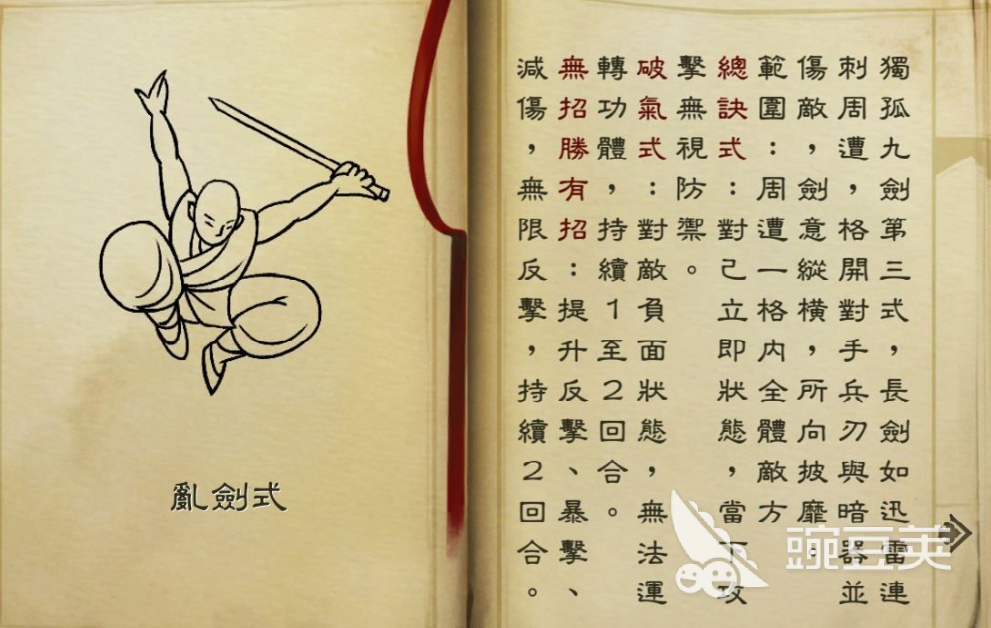 獨孤九劍第三式，長劍如迅雷連
刺周遭，格開對手兵刃與暗器並
傷敵，劍意縱橫，所向披靡。
範圍：周遭一格內全體敵方
總訣式：對己立即狀態，當下攻
擊無視防禦。
破氣式：對敵負面狀態，無法運
轉功體，持續1至2回合。
無招勝有招：提升反擊、暴擊、
減傷，無限反擊，持續2回合。
亂劍式
豌豆荚